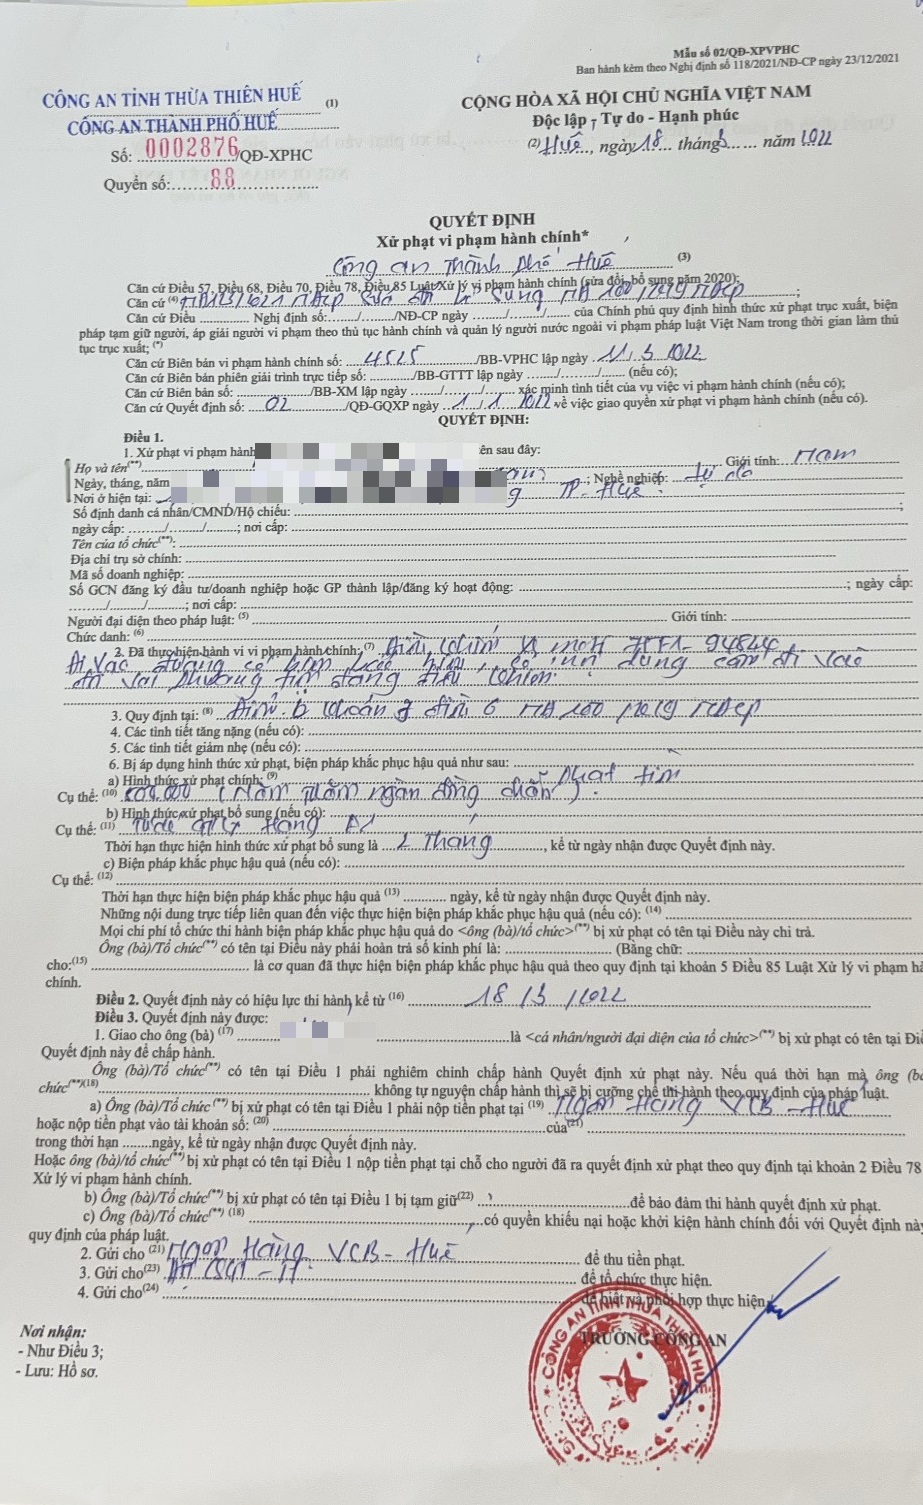 Mẫu số 02/QĐ-XPVPHC
Ban hành kèm theo Nghị định số 118/2021/NĐ-CP ngày 23/12/2021
CÔNG AN TỈNH THỪA THIÊN HUẾ (1)
CÔNG AN THÀNH PHỐ HUẾ
Số: 0002876/QĐ-XPHC
Quyển số: 88
CỘNG HÒA XÃ HỘI CHỦ NGHĨA VIỆT NAM
Độc lập - Tự do - Hạnh phúc
(2) Huế, ngày 18 tháng 3 năm 2022
QUYẾT ĐỊNH
Xử phạt vi phạm hành chính*
Công an Thành phố Huế (3)
Căn cứ Điều 57, Điều 68, Điều 70, Điều 78, Điều 85 Luật Xử lý vi phạm hành chính (sửa đổi, bổ sung năm 2020);
Căn cứ (4) NĐ123/2021 NĐCP sửa đổi bổ sung NĐ 100/2019 NĐCP;
Căn cứ Điều ......... Nghị định số:......./......./NĐ-CP ngày ......./......./....... của Chính phủ quy định hình thức xử phạt trục xuất, biện
pháp tạm giữ người, áp giải người vi phạm theo thủ tục hành chính và quản lý người nước ngoài vi phạm pháp luật Việt Nam trong thời gian làm thủ
tục trục xuất; (*)
Căn cứ Biên bản vi phạm hành chính số: 4525 /BB-VPHC lập ngày 11/3/2022
Căn cứ Biên bản phiên giải trình trực tiếp số: ........../BB-GTTT lập ngày ......./......./....... (nếu có);
Căn cứ Biên bản số: ............/BB-XM lập ngày ......./......./....... xác minh tình tiết của vụ việc vi phạm hành chính (nếu có);
Căn cứ Quyết định số: 02 /QĐ-GQXP ngày 1/1/2022 về việc giao quyền xử phạt vi phạm hành chính (nếu có).
QUYẾT ĐỊNH:
Điều 1.
1. Xử phạt vi phạm hành ên sau đây:
Họ và tên(**) Giới tính: Nam
Ngày, tháng, năm ; Nghề nghiệp: tự do
Nơi ở hiện tại: TP - Huế
Số định danh cá nhân/CMND/Hộ chiếu: ;
ngày cấp: ......./......./.......; nơi cấp:
Tên của tổ chức(**):
Địa chỉ trụ sở chính:
Mã số doanh nghiệp:
Số GCN đăng ký đầu tư/doanh nghiệp hoặc GP thành lập/đăng ký hoạt động: ; ngày cấp:
......./......./.......; nơi cấp:
Người đại diện theo pháp luật: (5) Giới tính:
Chức danh: (6)
2. Đã thực hiện hành vi vi phạm hành chính: (7) Điều khiển xe 94844
Đi vào đường có biển báo hiệu có nội dung cấm đi vào
đối với phương tiện đang điều khiển
3. Quy định tại: (8) Điểm b khoản 3 điều 6 NĐ 100/2019 NĐCP
4. Các tình tiết tăng nặng (nếu có):
5. Các tình tiết giảm nhẹ (nếu có):
6. Bị áp dụng hình thức xử phạt, biện pháp khắc phục hậu quả như sau:
a) Hình thức xử phạt chính: (9) Phạt tiền
Cụ thể: (10) 500.000 (Năm trăm ngàn đồng chẵn).
b) Hình thức xử phạt bổ sung (nếu có):
Cụ thể: (11) Tước GPLX Hạng A1
Thời hạn thực hiện hình thức xử phạt bổ sung là 2 Tháng, kể từ ngày nhận được Quyết định này.
c) Biện pháp khắc phục hậu quả (nếu có):
Cụ thể: (12)
Thời hạn thực hiện biện pháp khắc phục hậu quả (13) ............ ngày, kể từ ngày nhận được Quyết định này.
Những nội dung trực tiếp liên quan đến việc thực hiện biện pháp khắc phục hậu quả (nếu có): (14)
Mọi chi phí tổ chức thi hành biện pháp khắc phục hậu quả do <ông (bà)/tổ chức>(**) bị xử phạt có tên tại Điều này chi trả.
Ông (bà)/Tổ chức(**) có tên tại Điều này phải hoàn trả số kinh phí là: (Bằng chữ:
cho:(15) là cơ quan đã thực hiện biện pháp khắc phục hậu quả theo quy định tại khoản 5 Điều 85 Luật Xử lý vi phạm hà
chính.
Điều 2. Quyết định này có hiệu lực thi hành kể từ (16) 18/3/2022
Điều 3. Quyết định này được:
1. Giao cho ông (bà) (17) là <cá nhân/người đại diện của tổ chức>(**) bị xử phạt có tên tại Điề
Quyết định này để chấp hành.
Ông (bà)/Tổ chức(**) có tên tại Điều 1 phải nghiêm chỉnh chấp hành Quyết định xử phạt này. Nếu quá thời hạn mà ông (bà
chức(**)(18) không tự nguyện chấp hành thì sẽ bị cưỡng chế thi hành theo quy định của pháp luật.
a) Ông (bà)/Tổ chức(**) bị xử phạt có tên tại Điều 1 phải nộp tiền phạt tại (19) Ngân Hàng VCB - Huế
hoặc nộp tiền phạt vào tài khoản số: (20) của(21)
trong thời hạn ........ngày, kể từ ngày nhận được Quyết định này.
Hoặc ông (bà)/tổ chức(**) bị xử phạt có tên tại Điều 1 nộp tiền phạt tại chỗ cho người đã ra quyết định xử phạt theo quy định tại khoản 2 Điều 78
Xử lý vi phạm hành chính.
b) Ông (bà)/Tổ chức(**) bị xử phạt có tên tại Điều 1 bị tạm giữ(22) để bảo đảm thi hành quyết định xử phạt.
c) Ông (bà)/Tổ chức(**) (18) có quyền khiếu nại hoặc khởi kiện hành chính đối với Quyết định này
quy định của pháp luật.
2. Gửi cho (21) Ngân Hàng VCB - Huế để thu tiền phạt.
3. Gửi cho(23) CSGT - để tổ chức thực hiện.
4. Gửi cho(24) để biết và phối hợp thực hiện.
Nơi nhận:
- Như Điều 3;
- Lưu: Hồ sơ.
TRƯỞNG CÔNG AN
CÔNG AN TỈNH THỪA THIÊN HUẾ